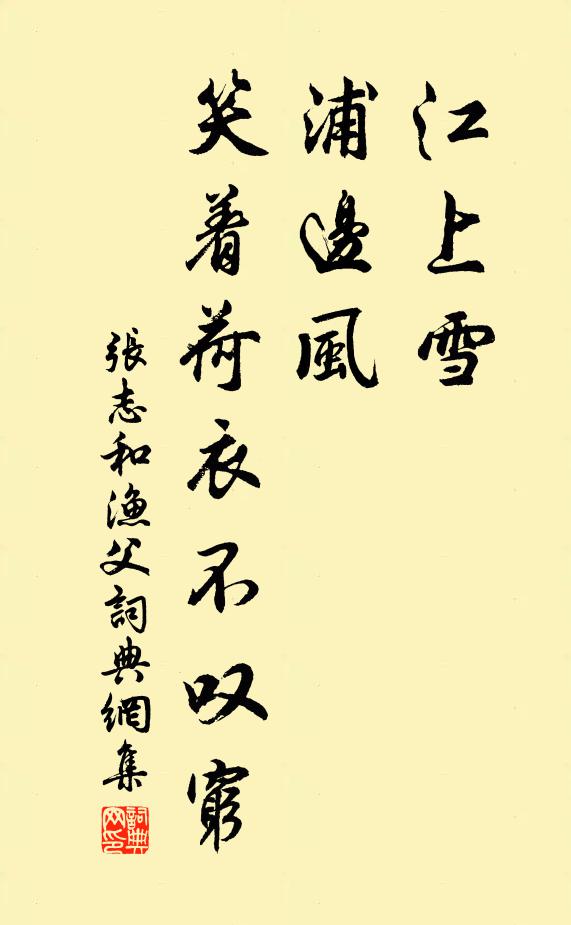 江上雪
浦邊風
笑着荷衣不叹窮
張志和漁父詞典網集
詞典网印